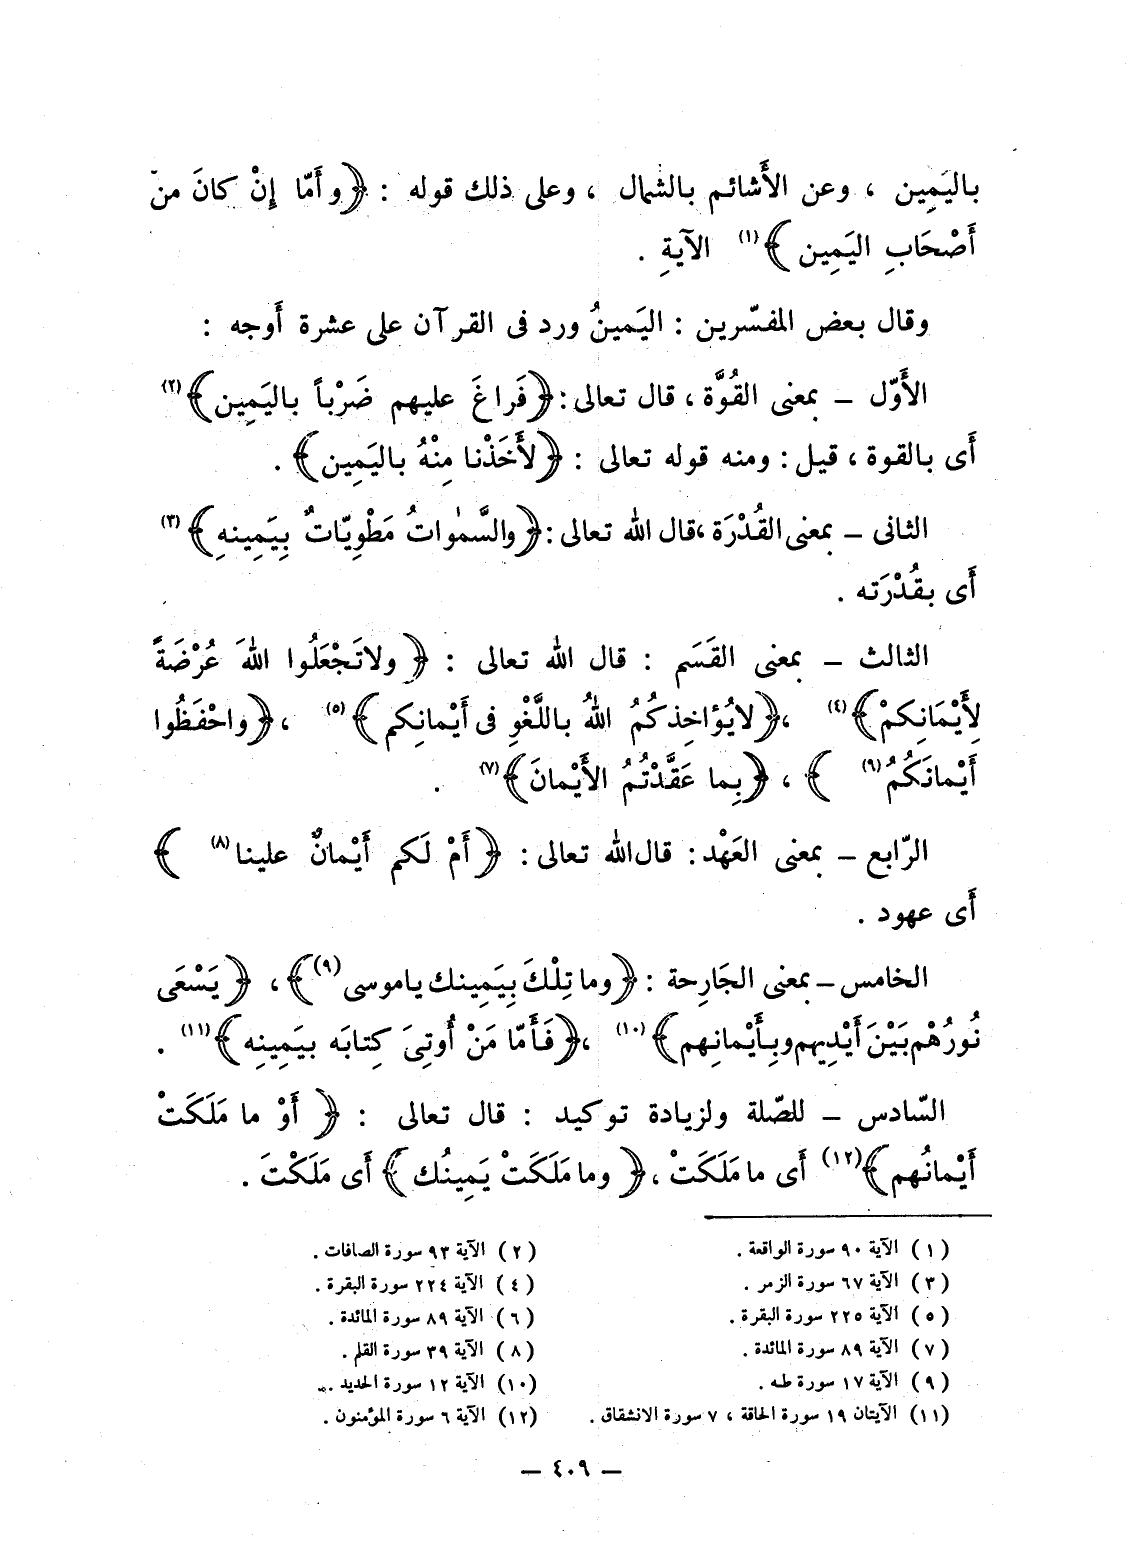 باليَمِين ، وعن الأَشائم بالشمال ، وعلى ذلك قوله : ﴿وأَمّا إِنْ كانَ منْ
أَصْحَابِ اليَمِين﴾(١) الآيَةِ .
وقال بعض المفسّرين : اليَمينُ ورد فى القرآن على عشرة أَوجه :
الأَوّل – بمعنى القُوَّة ، قال تعالى : ﴿فَراغَ عليهم ضَرْباً باليَمِين﴾(٢)
أَى بالقوة ، قيل : ومنه قوله تعالى : ﴿لأَخَذْنا مِنْهُ باليَمِين﴾ .
الثانى – بمعنى القُدْرَة ، قال الله تعالى : ﴿والسَّمٰواتُ مَطْوِيّاتٌ بِيَمِينهِ﴾(٣)
أَى بقُدْرَته .
الثالث – بمعنى القَسَم : قال الله تعالى : ﴿ولاتَجْعَلُوا اللهَ عُرْضَةً
لِأَيْمَانِكمْ﴾(٤) ، ﴿لايُؤاخِذكُمُ اللهُ باللَّغْوِ فى أَيْمانِكم﴾(٥) ، ﴿واحْفَظُوا
أَيْمانَكُمُ(٦) ﴾ ، ﴿بِما عَقَّدْتُمُ الأَيْمانَ﴾(٧) .
الرّابع – بمعنى العَهْد : قال الله تعالى : ﴿أَمْ لَكم أَيْمانٌ علينا(٨) ﴾
أَى عهود .
الخامس – بمعنى الجَارِحة : ﴿وما تِلْكَ بِيَمِينك ياموسى(٩)﴾ ، ﴿يَسْعَى
نُورُهُمْ بَيْنَ أَيْدِيهم وبِأَيْمانِهم﴾(١٠) ، ﴿فَأَمّا مَنْ أُوتِىَ كِتابَه بيَمِينِه﴾(١١) .
السّادس – للصّلة ولزيادة توكيد : قال تعالى : ﴿أَوْ ما مَلَكَتْ
أَيْمانُهم﴾(١٢) أَى ما مَلَكَتْ ، ﴿وما مَلَكَتْ يَمِينُك﴾ أَى مَلَكْتَ .
(١) الآية ٩٠ سورة الواقعة . (٢) الآية ٩٣ سورة الصافات .
(٣) الآية ٦٧ سورة الزمر . (٤) الآية ٢٢٤ سورة البقرة .
(٥) الآية ٢٢٥ سورة البقرة . (٦) الآية ٨٩ سورة المائدة .
(٧) الآية ٨٩ سورة المائدة . (٨) الآية ٣٩ سورة القلم .
(٩) الآية ١٧ سورة طه . (١٠) الآية ١٢ سورة الحديد .
(١١) الآيتان ١٩ سورة الحاقة ، ٧ سورة الانشقاق . (١٢) الآية ٦ سورة المؤمنون .
– ٤٠٩ –